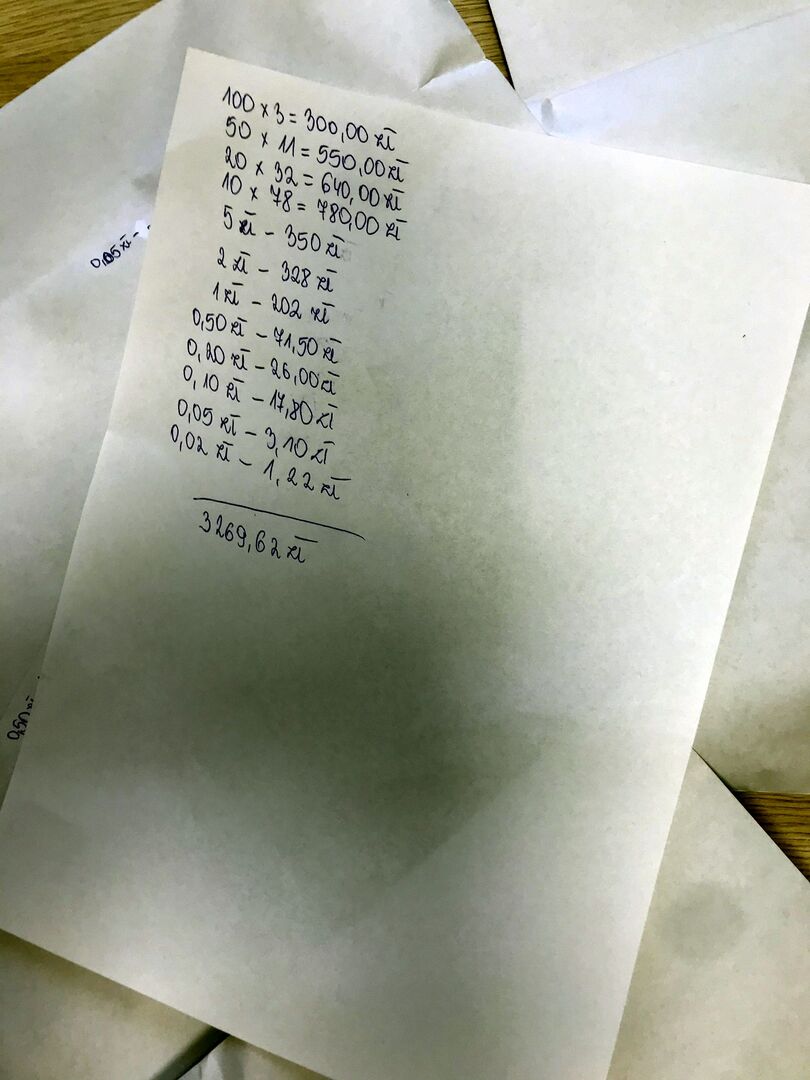 100 x 3 = 300,00 zł
50 x 11 = 550,00 zł
20 x 32 = 640,00 zł
10 x 78 = 780,00 zł
5 zł - 350 zł
2 zł - 328 zł
1 zł - 202 zł
0,50 zł - 71,50 zł
0,20 zł - 26,00 zł
0,10 zł - 17,80 zł
0,05 zł - 3,10 zł
0,02 zł - 1,22 zł
3269,62 zł
0,05 zł -
0,50 zł